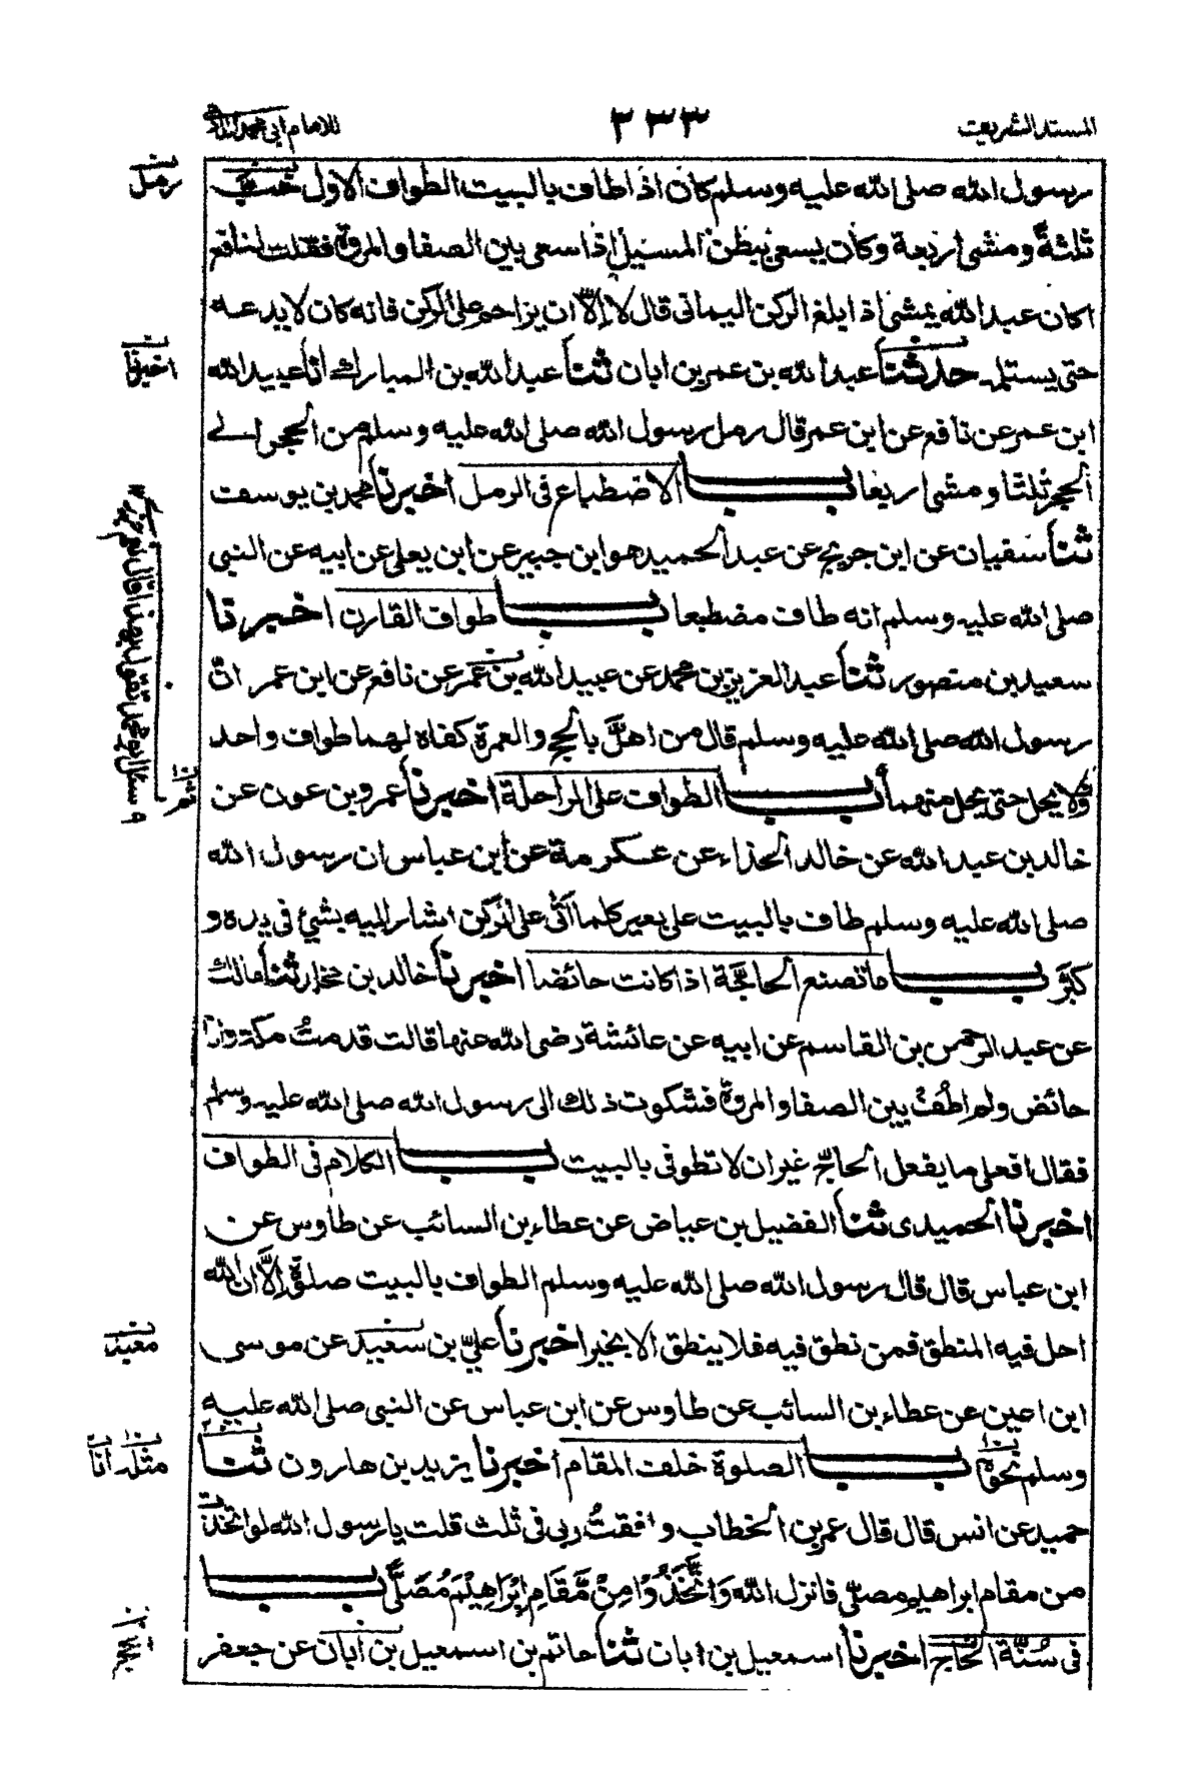 المسند الشريف
٢٣٣
للامام ابي محمد الدارمي
رسول الله صلى الله عليه وسلم كان اذا طاف بالبيت الطواف الاول خب
ثلثةً ومشى اربعة وكان يسعى ببطن المسيل اذا سعى بين الصفا والمروة فقلت لنافع
اكان عبد الله يمشى اذا بلغ الركن اليمانى قال لا إلّا ان يزاحم على الركن فانه كان لا يدعه
حتى يستلمه حدثنا عبد الله بن عمر بن ابان ثنا عبد الله بن المبارك انا عبيد الله
ابن عمر عن نافع عن ابن عمر قال رمل رسول الله صلى الله عليه وسلم من الحجر الے
الحجر ثلثا ومشى اربعا باب الاضطباع فى الرمل اخبرنا محمد بن يوسف
ثنا سفيان عن ابن جريج عن عبد الحميد هو ابن جبير عن ابن يعلى عن ابيه عن النبى
صلى الله عليه وسلم انه طاف مضطبعا باب طواف القارن اخبرنا
سعيد بن منصور ثنا عبد العزيز بن محمد عن عبيد الله بن عمر عن نافع عن ابن عمر انّ
رسول الله صلى الله عليه وسلم قال من اهلَّ بالحج والعمرة كفاه لهما طواف واحد
ولا يحل حتى يحل منهما باب الطواف على الراحلة اخبرنا عمرو بن عون عن
خالد بن عبد الله عن خالد الحذاء عن عكرمة عن ابن عباس ان رسول الله
صلى الله عليه وسلم طاف بالبيت على بعير كلما اَتٰى على الركن اشار اليه بشئ فى يده و
كبَّر باب ما تصنع الحاجَّة اذا كانت حائضا اخبرنا خالد بن مخلد ثنا مالك
عن عبد الرحمن بن القاسم عن ابيه عن عائشة رضى الله عنها قالت قدمتُ مكة وانا
حائض ولم اطُفْ بين الصفا والمروة فشكوت ذلك الى رسول الله صلى الله عليه وسلم
فقال افعلى ما يفعل الحاجّ غير ان لا تطوفى بالبيت باب الكلام فى الطواف
اخبرنا الحميدى ثنا الفضيل بن عياض عن عطاء بن السائب عن طاوس عن
ابن عباس قال قال رسول الله صلى الله عليه وسلم الطواف بالبيت صلوة إلَّا ان الله
احل فيه المنطق فمن نطق فيه فلا ينطق الا بخير اخبرنا عليّ بن سعيد عن موسى
ابن اعين عن عطاء بن السائب عن طاوس عن ابن عباس عن النبى صلى الله عليه
وسلم نحوه باب الصلوة خلف المقام اخبرنا يزيد بن هارون ثنا
حميد عن انس قال قال عمر بن الخطاب وافقتُ ربى فى ثلث قلت يا رسول الله لو اتخذت
من مقام ابراهيم مصلّى فانزل الله وَاتَّخَذُوْا مِنْ مَّقَامِ اِبْرَاهِيْمَ مُصَلًّى باب
فى سُنَّة الحاج اخبرنا اسمعيل بن ابان ثنا حاتم بن اسمعيل بن ابان عن جعفر
رمل
اخبرنا
معبد
مثله انا